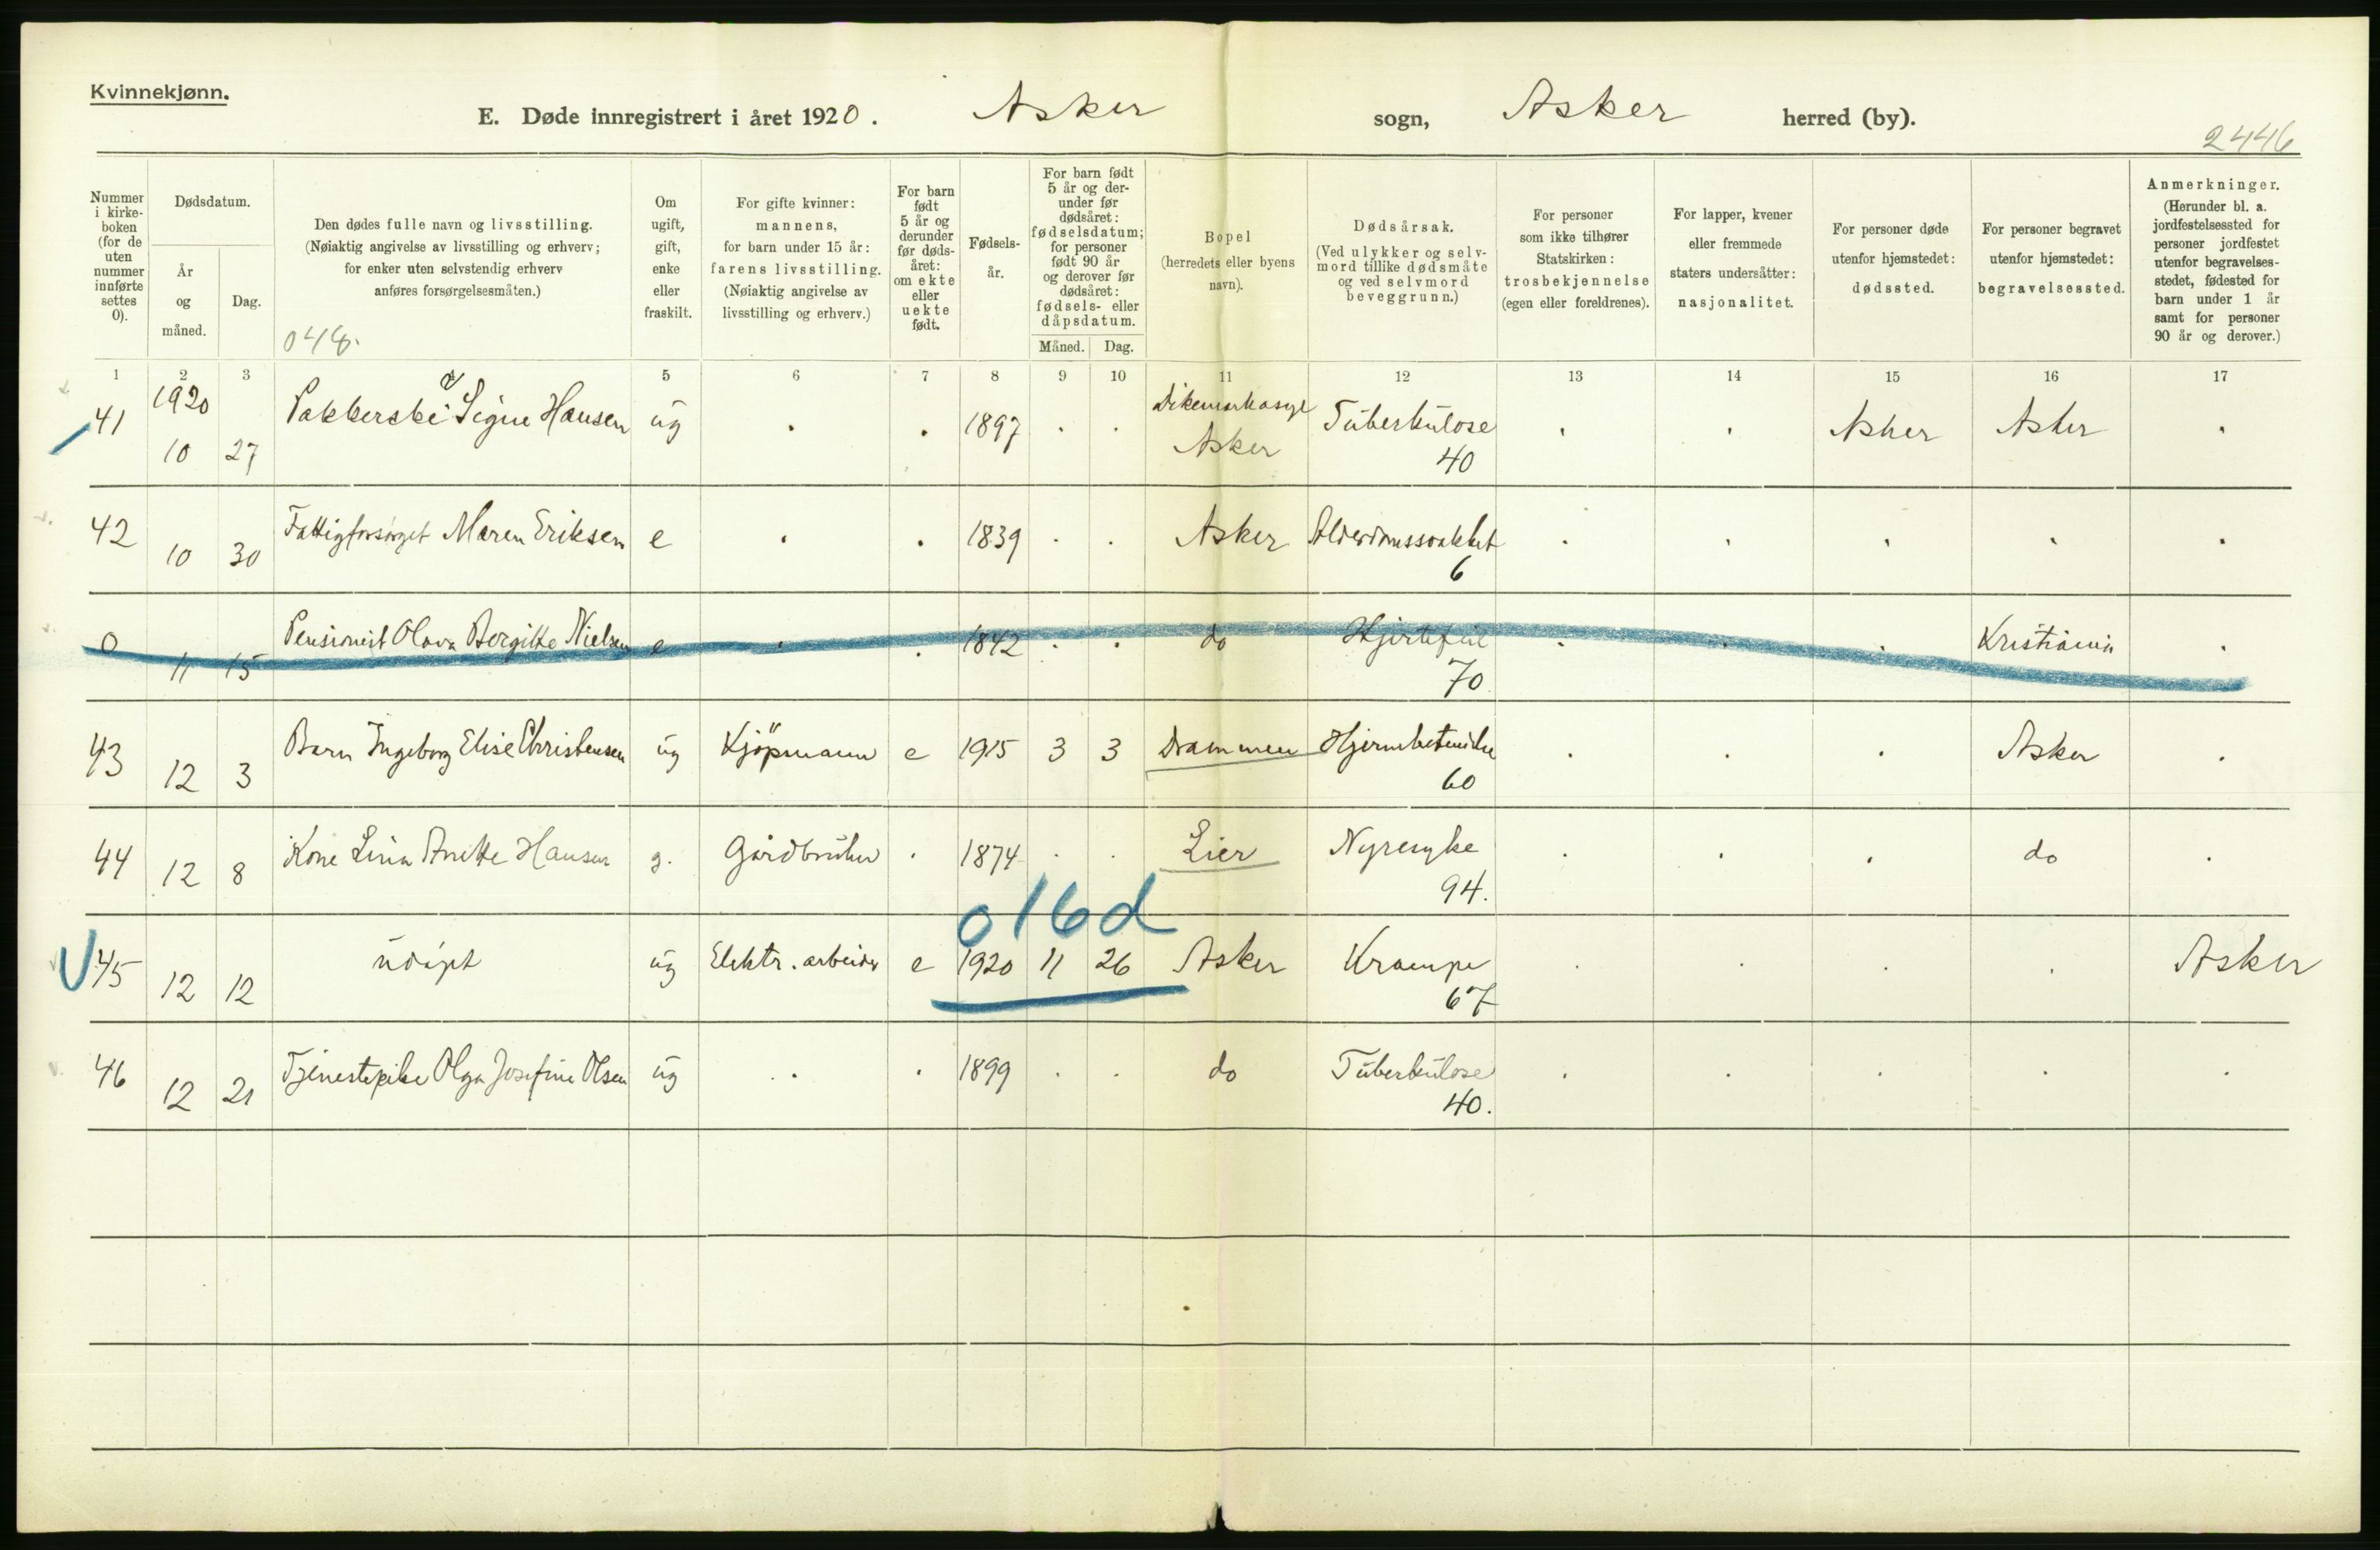 Kvinnekjønn.
E. Døde innregistrert i året 1920. Asker sogn, Asker herred (by).
2446
Nummer i kirke-boken (for de uten nummer innførte settes 0).
Dødsdatum.
År og måned.
Dag.
Den dødes fulle navn og livsstilling.
(Nøiaktig angivelse av livsstilling og erhverv;
for enker uten selvstendig erhverv
anføres forsørgelsesmåten.)
048.
Om ugift, gift, enke eller fraskilt.
For gifte kvinner:
mannens,
for barn under 15 år:
farens livsstilling.
(Nøiaktig angivelse av
livsstilling og erhverv.)
For barn født 5 år og derunder før døds-året: om ekte eller uekte født.
Fødsels-år.
For barn født 5 år og der-under før dødsåret: fødselsdatum; for personer født 90 år og derover før dødsåret: fødsels- eller dåpsdatum.
Måned.
Dag.
Bopel
(herredets eller byens
navn).
Dødsårsak.
(Ved ulykker og selv-
mord tillike dødsmåte
og ved selvmord
beveggrunn.)
For personer
som ikke tilhører
Statskirken:
trosbekjennelse
(egen eller foreldrenes).
For lapper, kvener
eller fremmede
staters undersåtter:
nasjonalitet.
For personer døde
utenfor hjemstedet:
dødssted.
For personer begravet
utenfor hjemstedet:
begravelsessted.
Anmerkninger.
(Herunder bl. a.
jordfestelsessted for
personer jordfestet
utenfor begravelses-
stedet, fødested for
barn under 1 år
samt for personer
90 år og derover.)
1 2 3 5 6 7 8 9 10 11 12 13 14 15 16 17
41 1920 10 27 Signe Hansen ug . . 1897 . . Asker Tuberkulose 40 . . Asker Asker .
42 10 30 Fattigforsørget Maren Eriksen e . . 1839 . . Asker Alderdomssvakhet 6 . . . . .
0 11 15 Pensionist Olava Bergitte Nielsen e . . 1842 . . do Hjertefeil 70 . . . Kristiania .
43 12 3 Barn Ingeborg Elise Christensen ug Kjöpmann e 1915 3 3 Drammen 60 . . . Asker .
44 12 8 Kone Lina Anette Hansen g. Gårdbruker . 1874 . . Lier Nyresyke 94. . . . do .
016d
45 12 12 udøpt ug Elektr. arbeider e 1920 11 26 Asker Krampe 67 . . . . Asker
46 12 21 Tjenestepike Olga Josefine Olsen ug . . 1899 . . do Tuberkulose 40. . . . . .